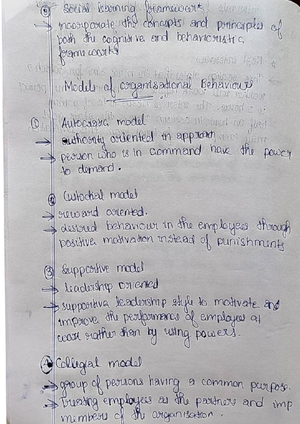 ③ Social learning frameworks
→ incorporate the concepts and principles of
both the cognitive and behavioristic
frameworks
Models of organisational Behaviour
① Autocratic model
→ authority oriented in approch
→ person who is in command have the power
to demand.
② Custodial model
→ reward oriented.
→ desired behaviour in the employees through
positive motivation instead of punishments
③ Supportive model
→ leadership oriented
→ supportive leadership style to motivate and
improve the performance of employees at
work rather than by using powers.
④ Collegial model
→ group of persons having a common purpose.
→ Treating employees as the partners and imp
members of the organisation.